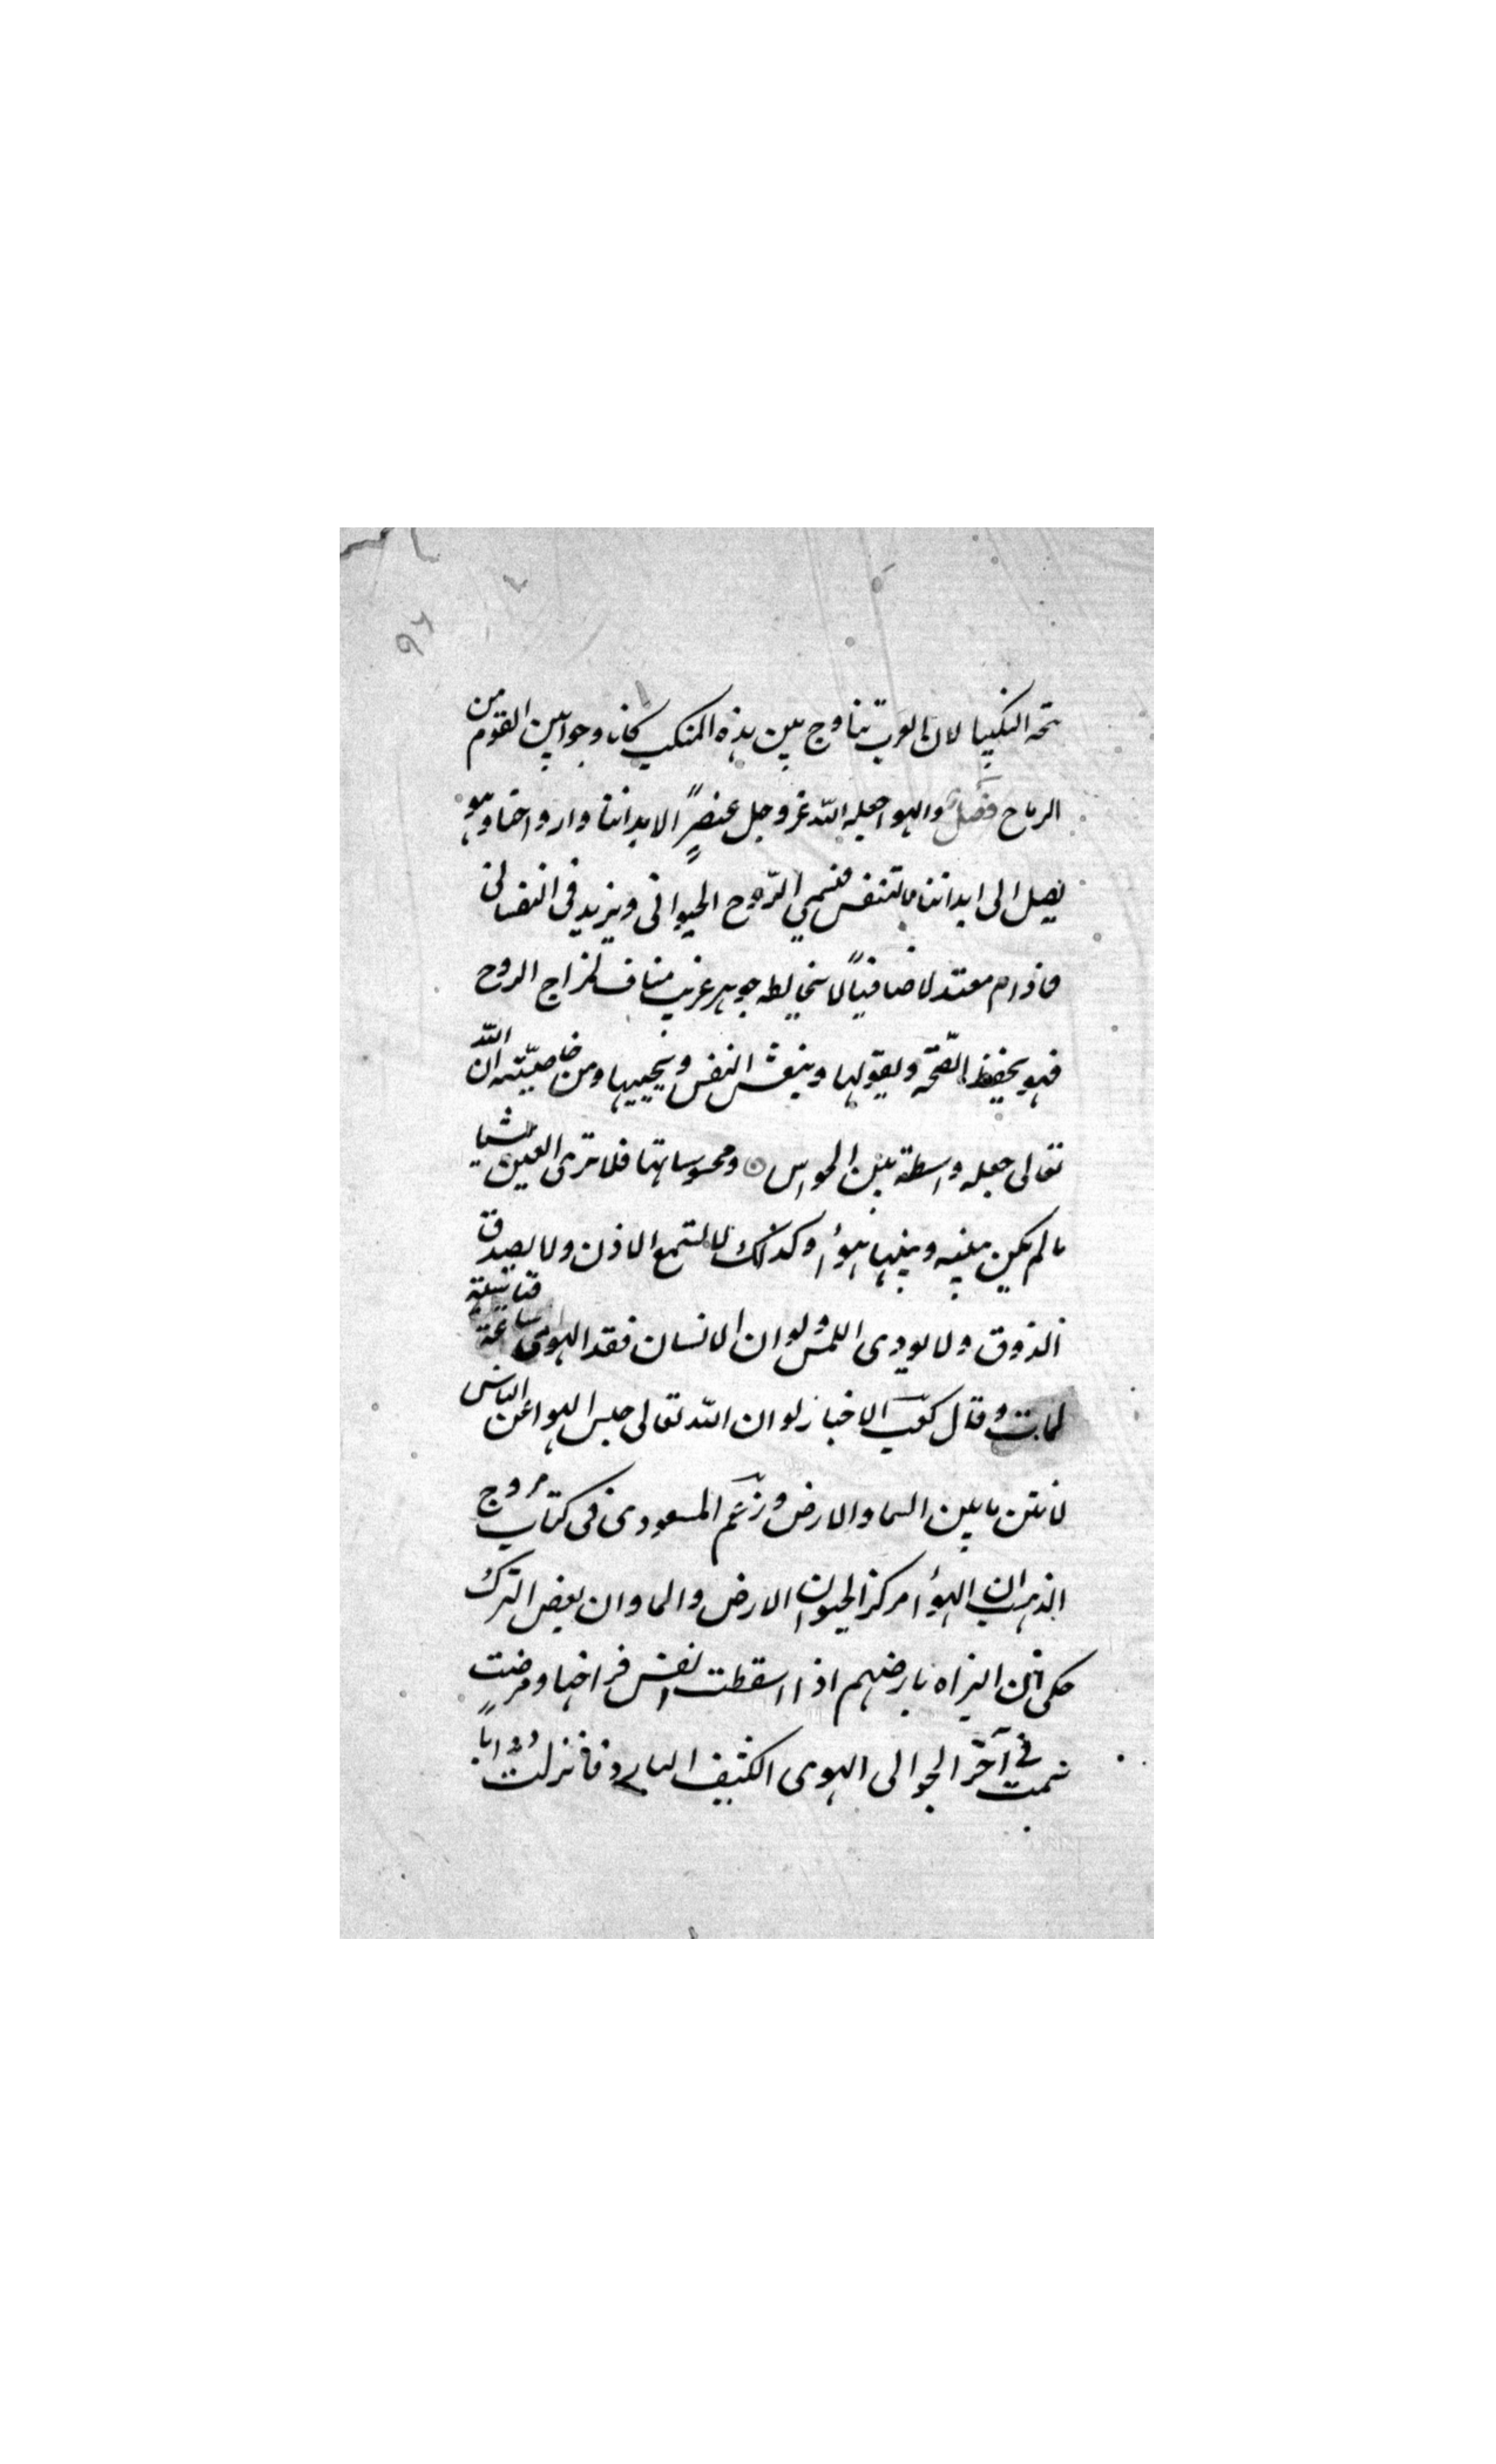 ٩٦
تحة النكيبا لان العرب تناوح بين هذه المنكب كما ناوحوا بين القوم من
الرياح فصل والهوا جعله الله عز وجل عنصرًا لابداننا وارواحنا وهو
يصل الى ابداننا بالتنفس فنسمي الرّوح الحيوانى ويزيد فى النفسانى
فاذ دام معتدلا صافيًا لا يخالطه جوهر غريب مناف لمزاج الروح
فهو يحفظ الصّحة ويقويها وينعش النفس ويحييها ومن خاصيّته ان الله
تعالى جعله واسطة بين الحواس ومحسوساتها فلا ترى العين شيا
ما لم يكن بينه وبينها هوأ وكذلك لا تسمع الاذن ولا يصدق
الذوق ولا يودى اللمس ولو ان الانسان فقد الهوى ساعة
لمات وقال كعب الاحبار لو ان الله تعالى حبس الهوا عن الناس
لانتن ما بين السما والارض وزعم المسعودى فى كتاب مروج
الذهب ان الهوأ مركز الحيوان الارض والما وان بعض الترك
حكى ان البزاه بارضهم اذا اسقطت انفس فراخها ومرضت
سمت فى آخر الجو الى الهوى الكثيف البارد فانزلت دوابًا